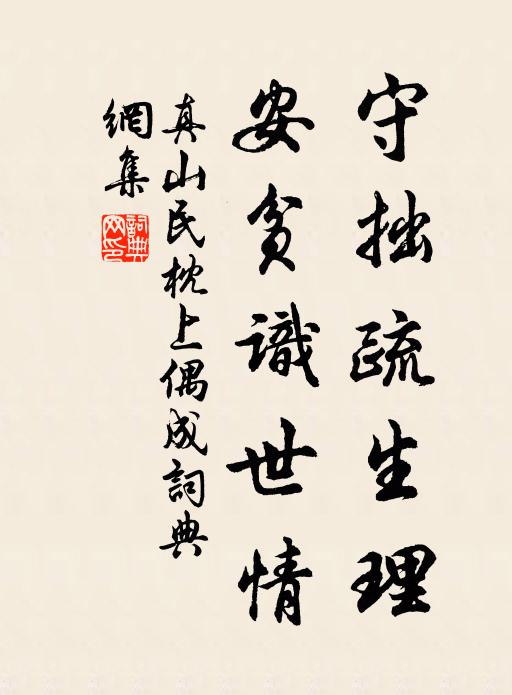 守拙疏生理
安貧識世情
真山民枕上偶成詞典
網集
詞典
網印